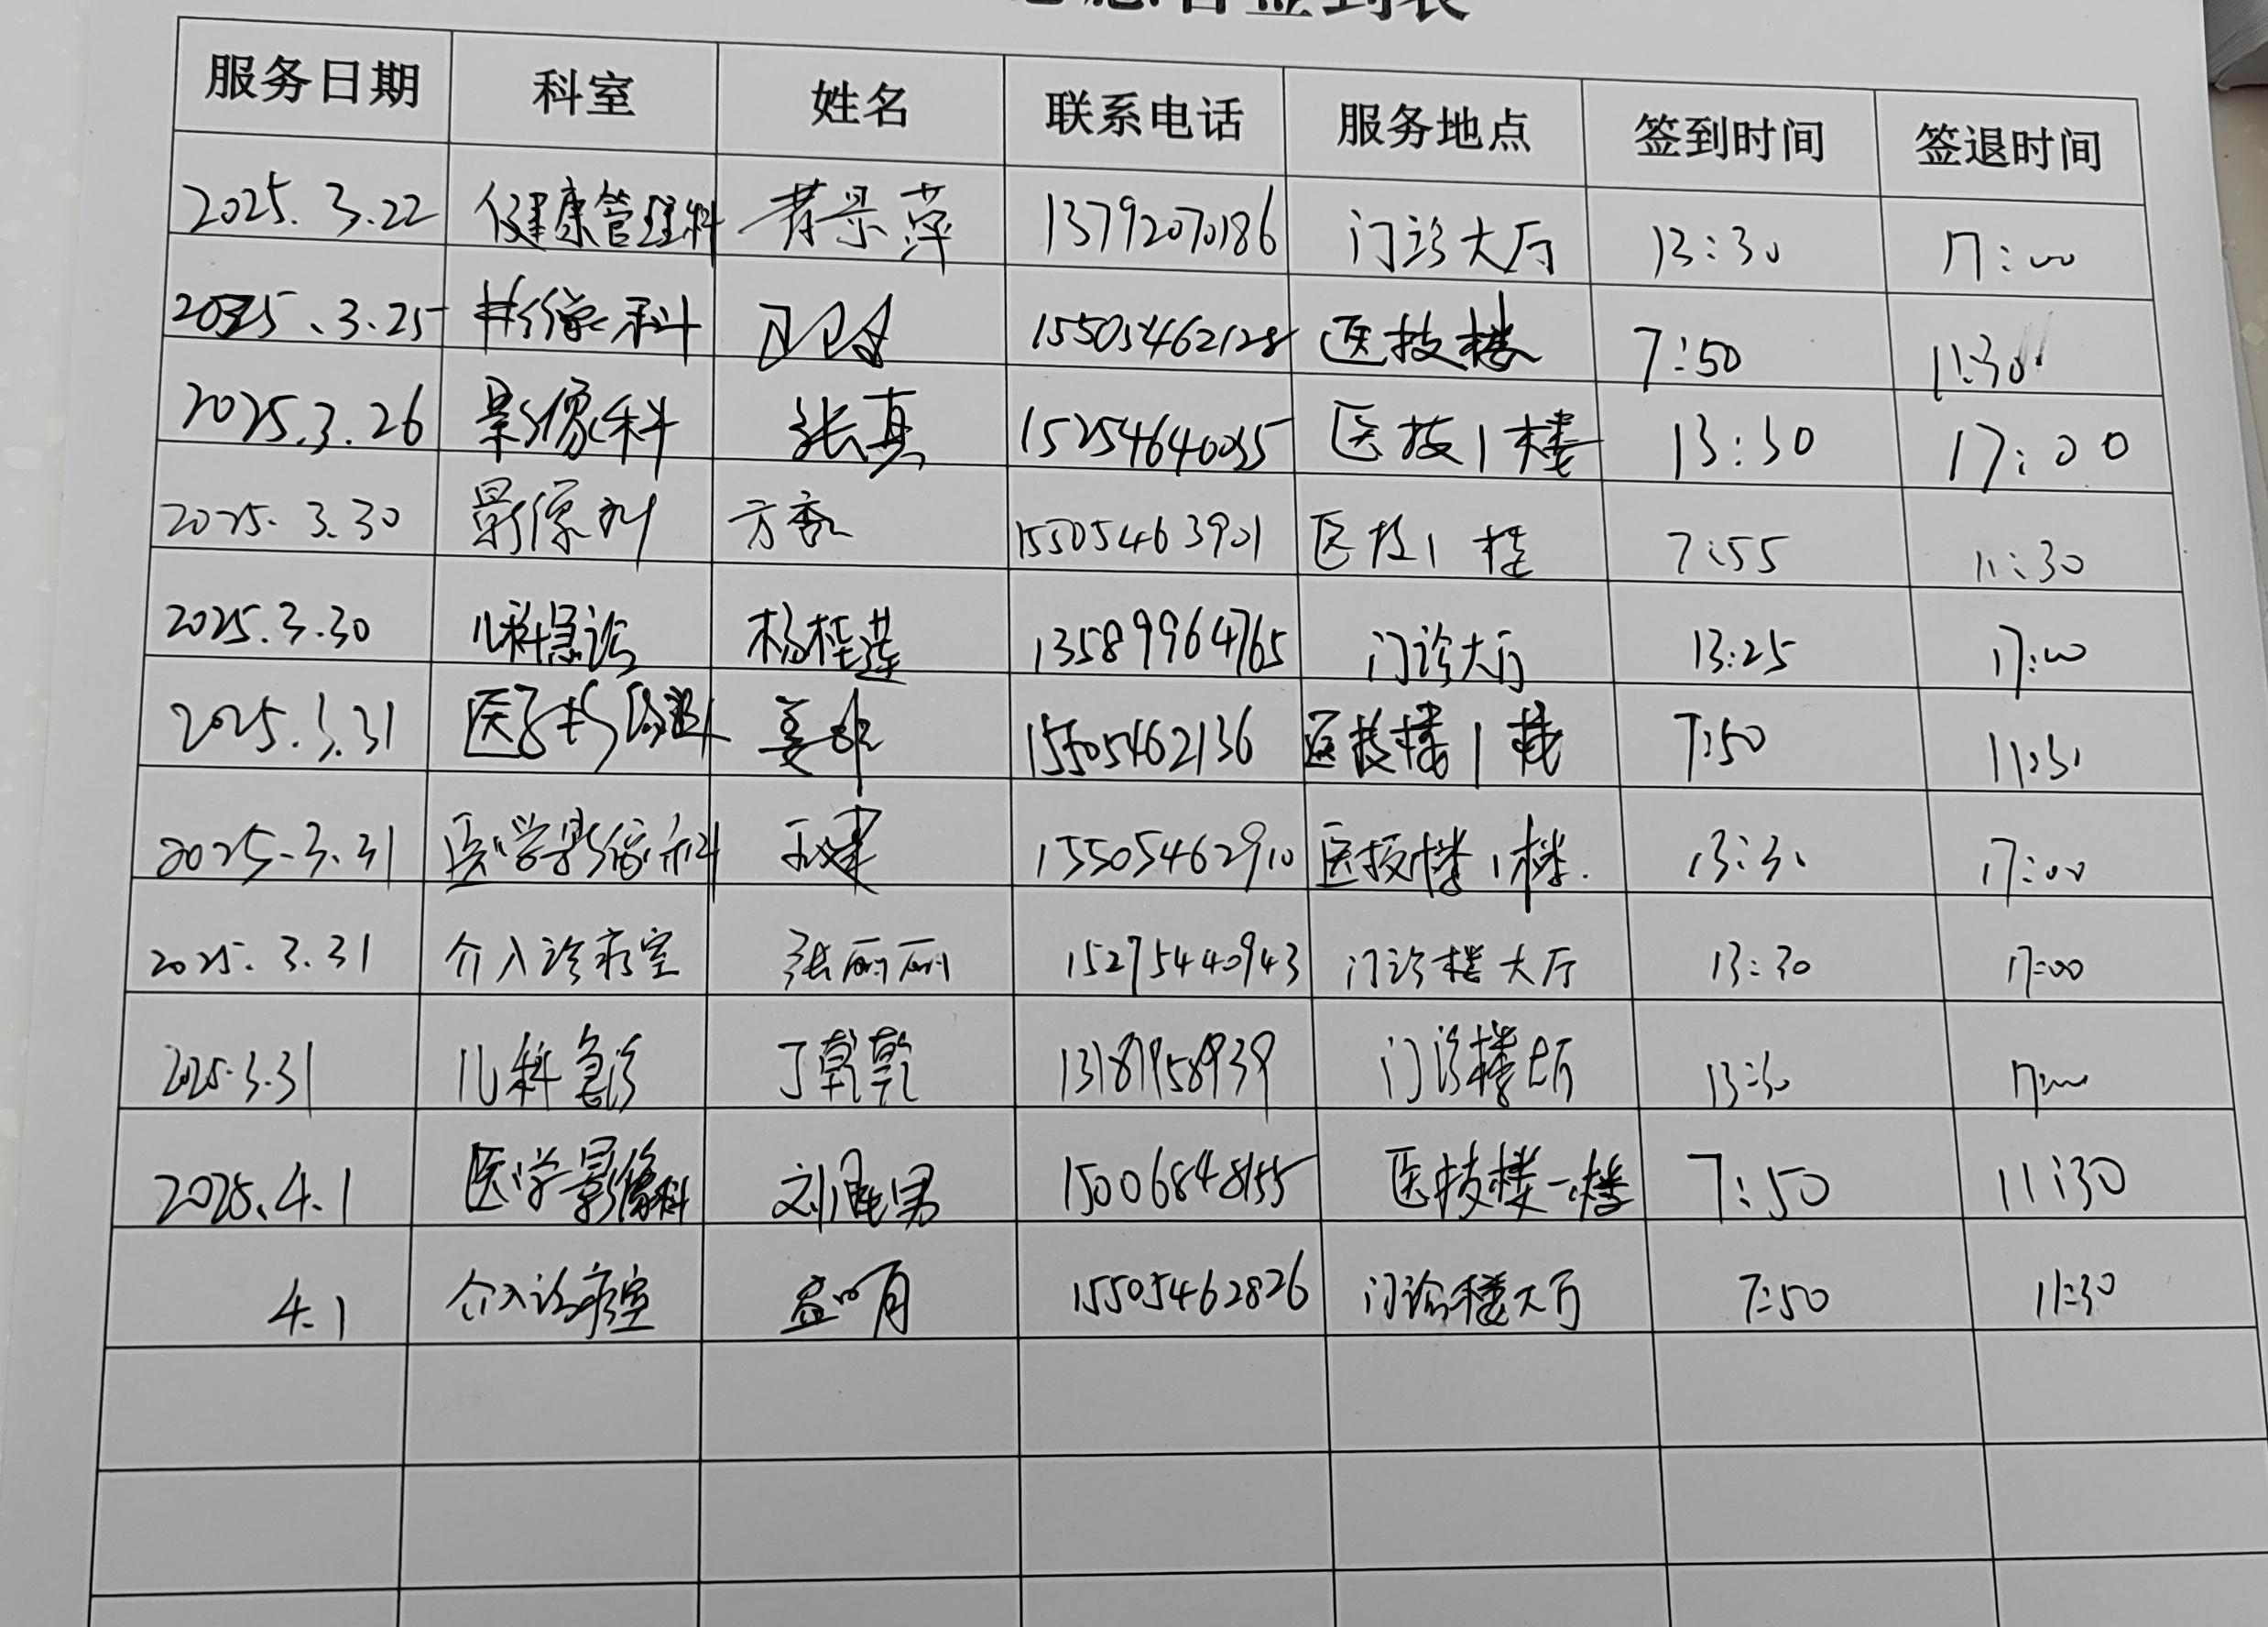 签到表
服务日期 科室 姓名 联系电话 服务地点 签到时间 签退时间
2025.3.22 健康管理科 景萍 13792070186 门诊大厅 13:30 17:00
2025.3.25 影像科 15505462128 医技楼 7:50 11:30
2025.3.26 影像科 张真 15254640035 医技1楼 13:30 17:00
2025.3.30 影像科 方 15505463901 医技1楼 7:55 11:30
2025.3.30 儿科急诊 杨桂莲 13589964765 门诊大厅 13:25 17:00
2025.3.31 医学影像科 姜 15505462136 医技楼1楼 7:50 11:30
2025.3.31 医学影像科 15505462910 医技楼1楼. 13:30 17:00
2025.3.31 介入诊疗室 张丽丽 15275440943 门诊楼大厅 13:30 17:00
2025.3.31 儿科急诊 丁乾乾 门诊楼大厅 13:30 17:00
2025.4.1 医学影像科 刘 男 15006848155 医技楼一楼 7:50 11:30
4.1 介入诊疗室 15505462826 门诊楼大厅 7:50 11:30